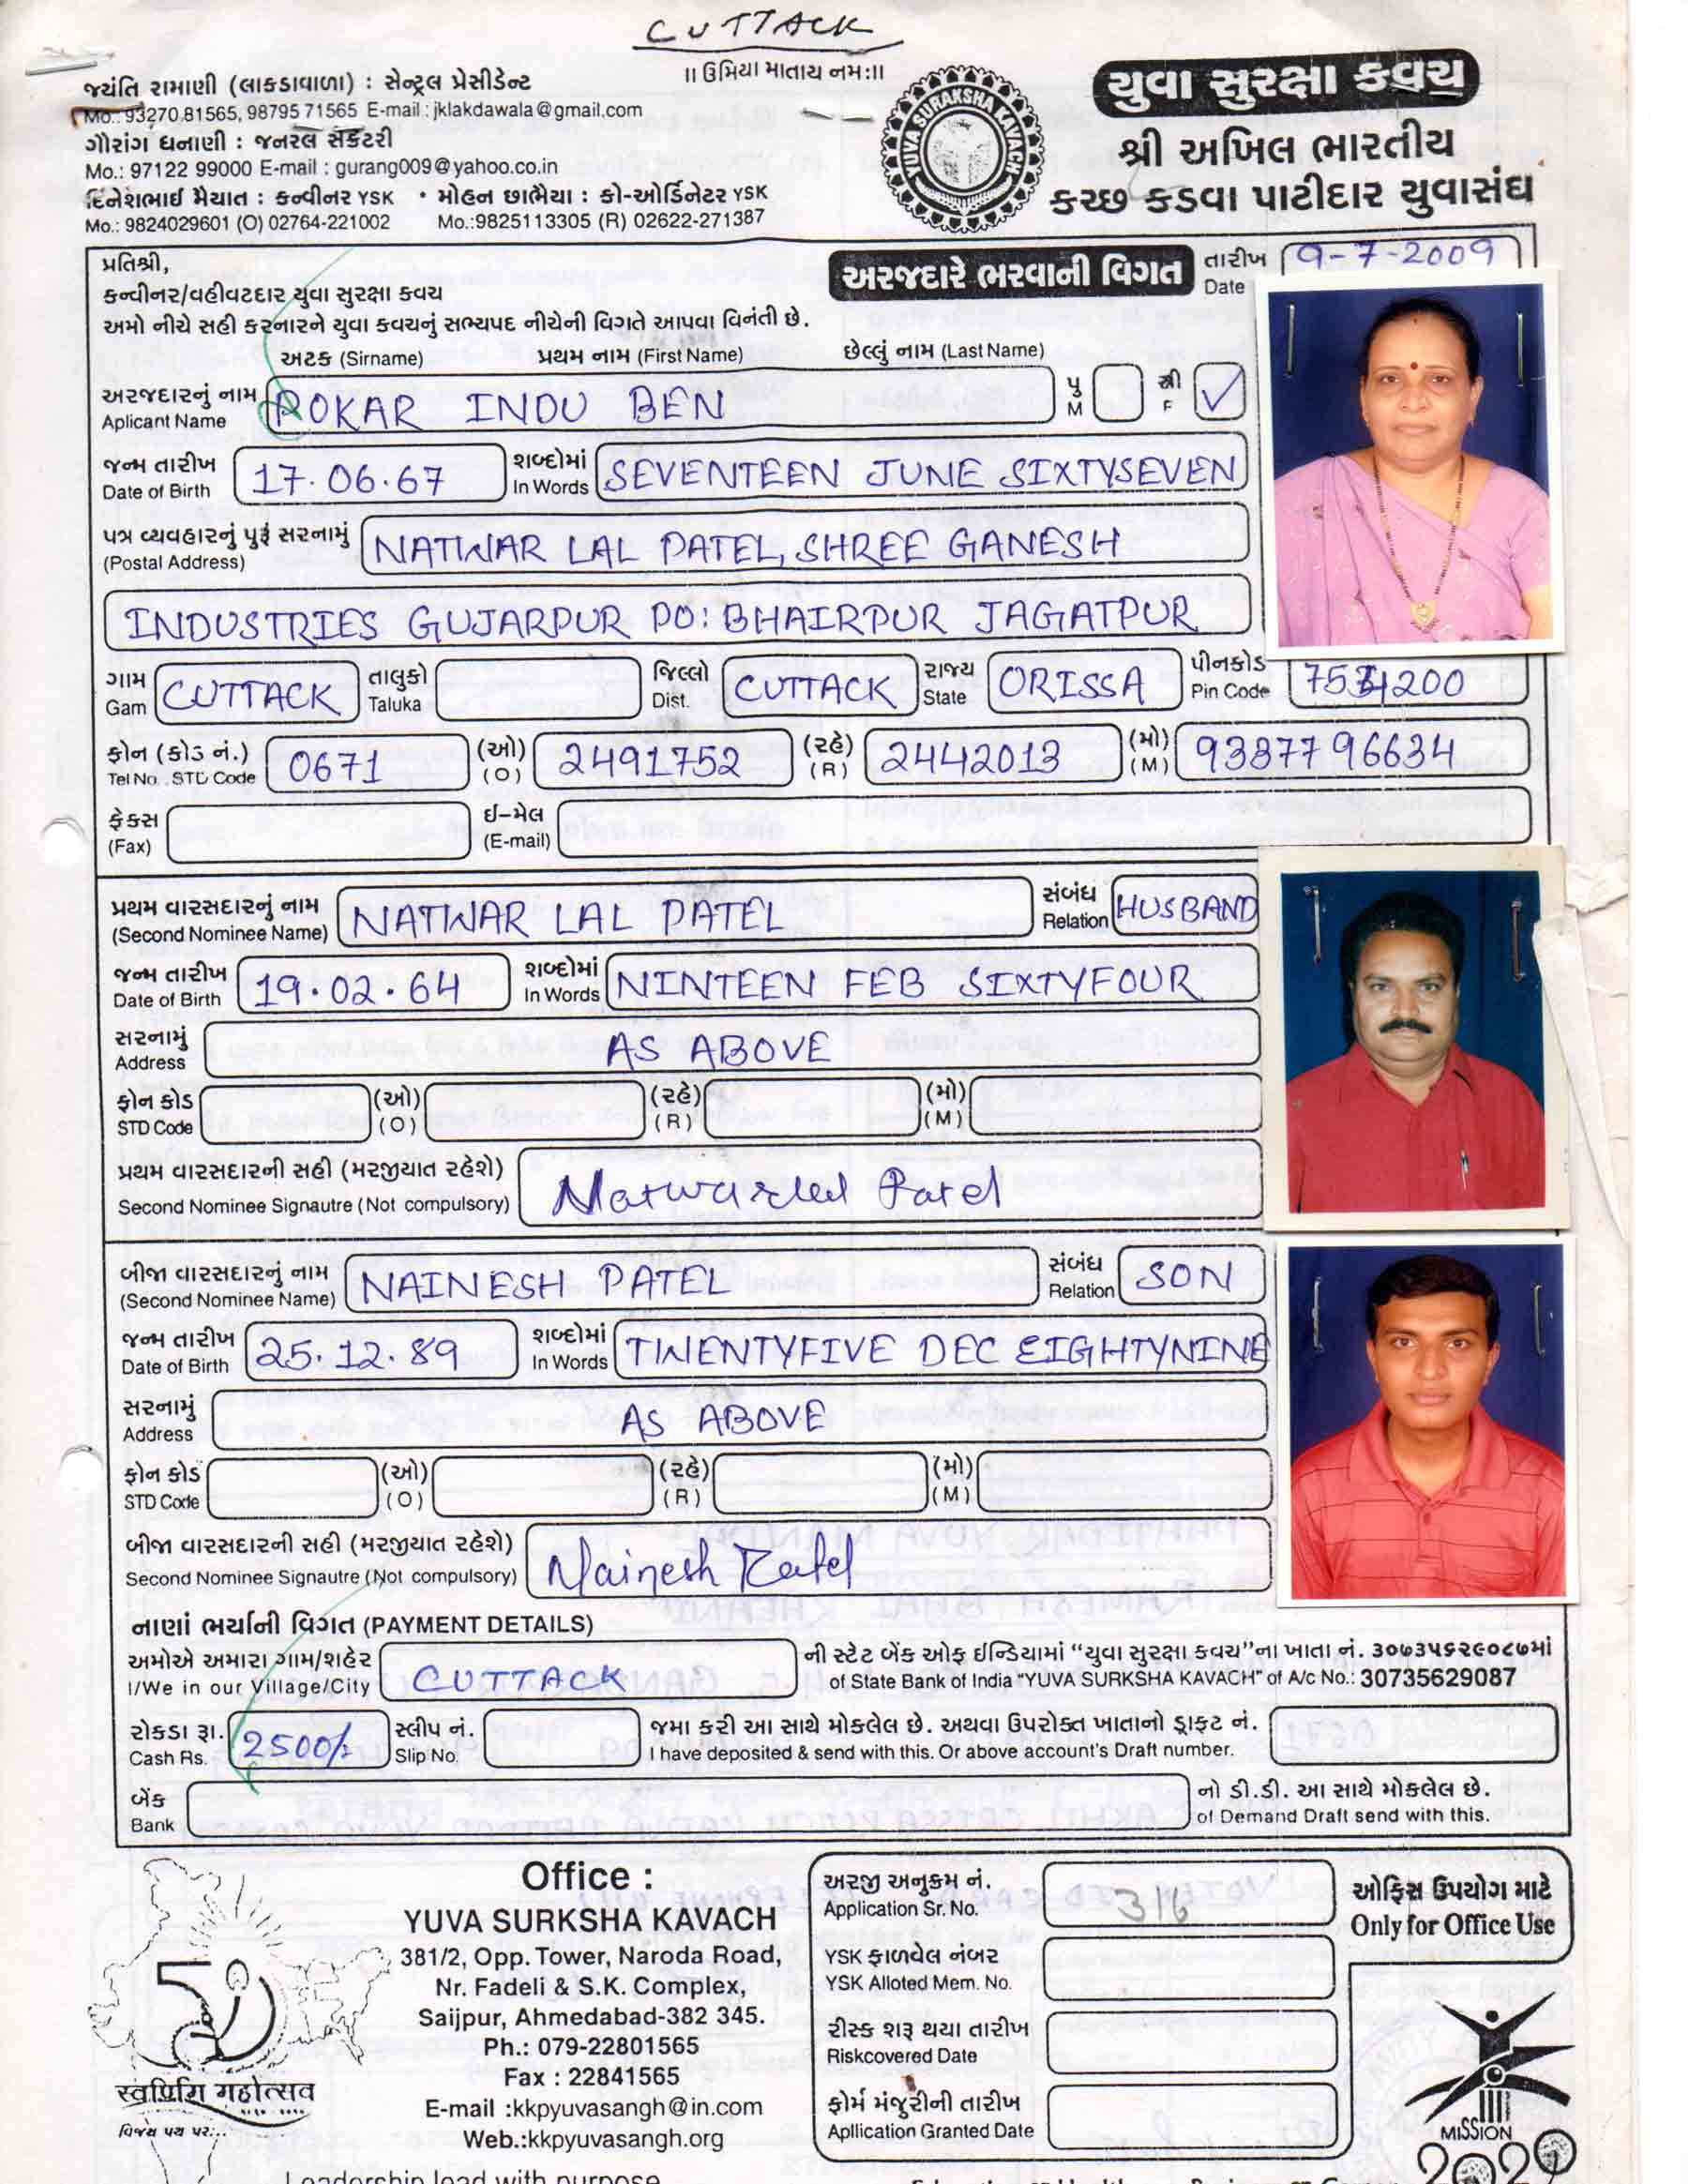 CUTTACK
જયંતિ રામાણી (લાકડાવાળા) : સેન્ટ્રલ પ્રેસીડેન્ટ
Mo.: 93270 81565, 98795 71565 E-mail : jklakdawala@gmail.com
ગૌરાંગ ધનાણી : જનરલ સેક્રેટરી
Mo.: 97122 99000 E-mail : gurang009@yahoo.co.in
દિનેશભાઈ મૈયાત : કન્વીનર YSK • મોહન છાભૈયા : કો-ઓર્ડિનેટર YSK
Mo.: 9824029601 (O) 02764-221002 Mo.:9825113305 (R) 02622-271387
॥ ઉમિયા માતાય નમઃ॥
YUVA SURAKSHA KAVACH
યુવા સુરક્ષા કવચ
શ્રી અખિલ ભારતીય
કચ્છ કડવા પાટીદાર યુવાસંઘ
પ્રતિશ્રી,
અરજદારે ભરવાની વિગત તારીખ Date 9-7-2009
કન્વીનર/વહીવટદાર યુવા સુરક્ષા કવચ
અમો નીચે સહી કરનારને યુવા કવચનું સભ્યપદ નીચેની વિગતે આપવા વિનંતી છે.
અટક (Sirname) પ્રથમ નામ (First Name) છેલ્લું નામ (Last Name)
અરજદારનું નામ Aplicant Name POKAR INDU BEN પુ M સ્ત્રી F ✓
જન્મ તારીખ Date of Birth 17.06.67 શબ્દોમાં In Words SEVENTEEN JUNE SIXTYSEVEN
પત્ર વ્યવહારનું પુરૂં સરનામું (Postal Address) NATWAR LAL PATEL, SHREE GANESH
INDUSTRIES GUJARPUR PO: BHAIRPUR JAGATPUR
ગામ Gam CUTTACK તાલુકો Taluka જિલ્લો Dist. CUTTACK રાજ્ય State ORISSA પીનકોડ Pin Code 754200
ફોન (કોડ નં.) Tel No. STD Code 0671 (ઓ) (O) 2491752 (રહે) (R) 2442013 (મો) (M) 9337796634
ફેક્સ (Fax) ઈ-મેલ (E-mail)
પ્રથમ વારસદારનું નામ (Second Nominee Name) NATWAR LAL PATEL સંબંધ Relation HUSBAND
જન્મ તારીખ Date of Birth 19.02.64 શબ્દોમાં In Words NINTEEN FEB SIXTYFOUR
સરનામું Address AS ABOVE
ફોન કોડ STD Code (ઓ) (O) (રહે) (R) (મો) (M)
પ્રથમ વારસદારની સહી (મરજીયાત રહેશે) Second Nominee Signautre (Not compulsory) Natwarlal Patel
બીજા વારસદારનું નામ (Second Nominee Name) NAINESH PATEL સંબંધ Relation SON
જન્મ તારીખ Date of Birth 25.12.89 શબ્દોમાં In Words TWENTYFIVE DEC EIGHTYNINE
સરનામું Address AS ABOVE
ફોન કોડ STD Code (ઓ) (O) (રહે) (R) (મો) (M)
બીજા વારસદારની સહી (મરજીયાત રહેશે) Second Nominee Signautre (Not compulsory) Nainesh Patel
નાણાં ભર્યાની વિગત (PAYMENT DETAILS)
અમોએ અમારા ગામ/શહેર I/We in our Village/City CUTTACK ની સ્ટેટ બેંક ઓફ ઈન્ડિયામાં “યુવા સુરક્ષા કવચ”ના ખાતા નં. ૩૦૭૩૫૬૨૯૦૮૭માં
of State Bank of India "YUVA SURKSHA KAVACH" of A/c No.: 30735629087
રોકડા રૂા. Cash Rs. 2500/- સ્લીપ નં. Slip No. જમા કરી આ સાથે મોકલેલ છે. અથવા ઉપરોક્ત ખાતાનો ડ્રાફ્ટ નં.
I have deposited & send with this. Or above account's Draft number.
બેંક Bank નો ડી.ડી. આ સાથે મોકલેલ છે.
of Demand Draft send with this.
સ્વર્ણિમ મહોત્સવ
વિજય પથ પર...
Office :
YUVA SURKSHA KAVACH
381/2, Opp. Tower, Naroda Road,
Nr. Fadeli & S.K. Complex,
Saijpur, Ahmedabad-382 345.
Ph.: 079-22801565
Fax : 22841565
E-mail :kkpyuvasangh@in.com
Web.:kkpyuvasangh.org
અરજી અનુક્રમ નં. Application Sr. No. 316
ઓફિસ ઉપયોગ માટે
Only for Office Use
YSK ફાળવેલ નંબર
YSK Alloted Mem. No.
રીસ્ક શરૂ થયા તારીખ
Riskcovered Date
ફોર્મ મંજુરીની તારીખ
Apllication Granted Date
MISSION
2020
Leadership lead with purpose